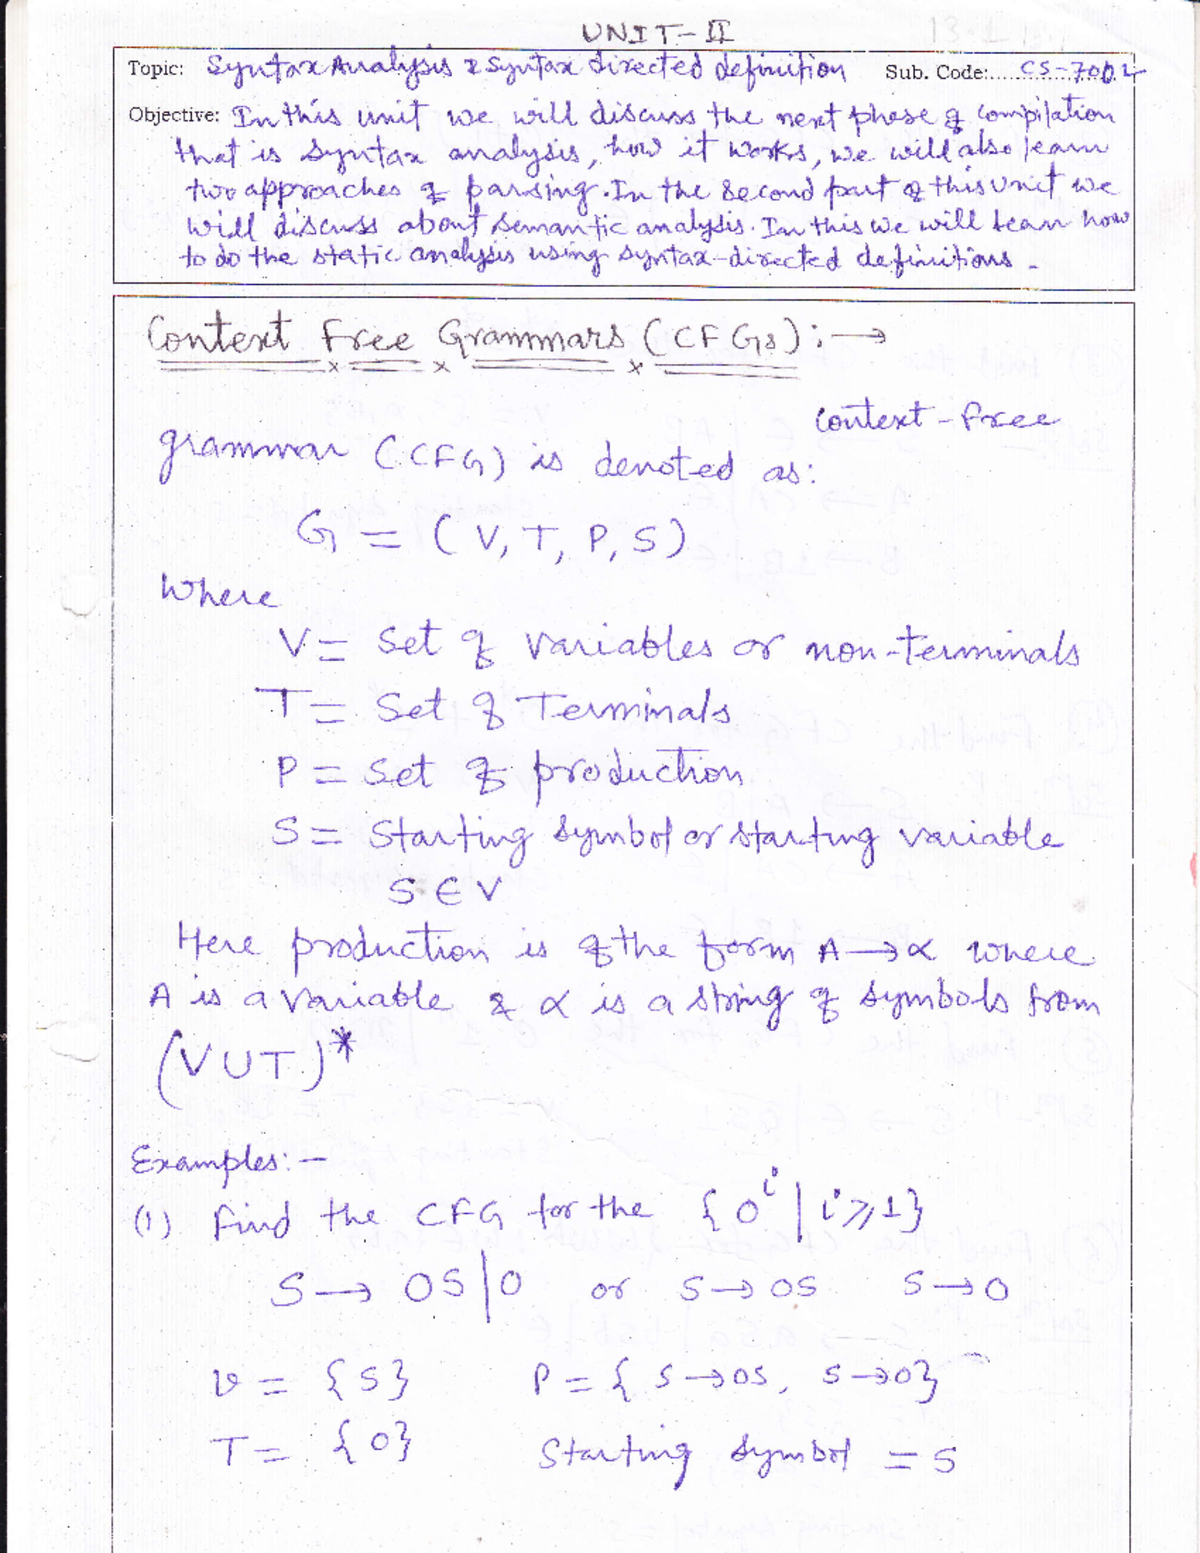 UNIT-II
Topic: Syntax Analysis & Syntax directed definition Sub. Code:.....CS-7002
Objective: In this unit we will discuss the next phase of compilation
that is syntax analysis, how it works, we will also learn
two approaches of parsing. In the second part of this unit we
will discuss about semantic analysis. In this we will lean how
to do the static analysis using syntax-directed definitions.
Context free Grammars (CFGs):→
Context-free
grammar (CFG) is denoted as:
G = (V, T, P, S)
Where
V = Set of variables or non-terminals
T = Set of Terminals
P = Set of production
S = Starting symbol or starting variable
S ∈ V
Here production is of the form A→α where
A is a variable & α is a string of symbols from
(V∪T)*
Examples:-
(1) Find the CFG for the {0ⁱ | i⩾1}
S → 0S|0 or S→0S S→0
V = {S} P = {S→0S, S→0}
T = {0} Starting symbol = S